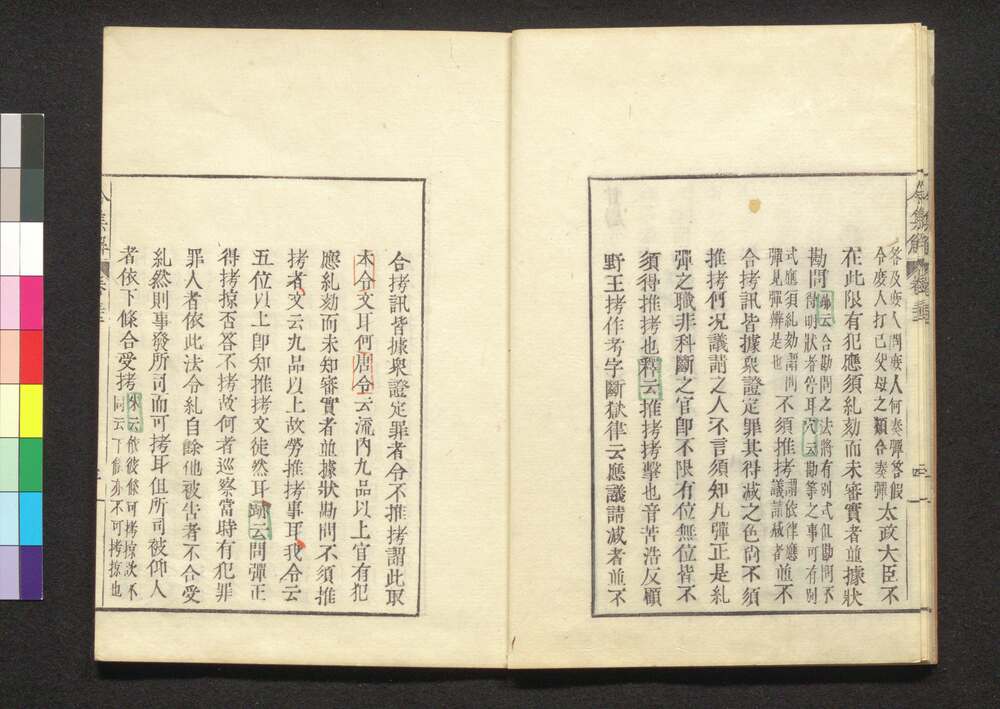 答及庶人問庶人何奏彈答假
令庶人打己父母之類合奏彈
太政大臣不
在此限有犯應須糺劾而未審實者並據狀
勘問
跡云合勘問之法將有別式但勘問不
得明狀者停耳穴云勘籌之事可有別
式應須糺劾謂問
彈見彈辨是也
不須推拷
謂依律應
議請减者
並不
合拷訊皆據衆證定罪其得减之色尙不須
推拷何况議請之人不言須知凡彈正是糺
彈之職非科斷之官卽不限有位無位皆不
須得推拷也釋云推拷拷擊也音苦浩反顧
野王拷作考字斷獄律云應議請减者並不
合拷訊皆據衆證定罪者令不推拷謂此取
本令文耳何唐令云流內九品以上官有犯
應糺劾而未知審實者並據狀勘問不須推
拷者文云九品以上故勞推拷事耳我令云
五位以上卽知推拷文徒然耳跡云問彈正
得拷掠否答不拷故何者巡察當時有犯罪
罪人者依此法令糺自餘他被告者不合受
糺然則事發所司而可拷耳但所司被仰人
者依下條合受拷
朱云依彼條可拷掠次不
同云下條亦不可拷掠也
令集解
卷